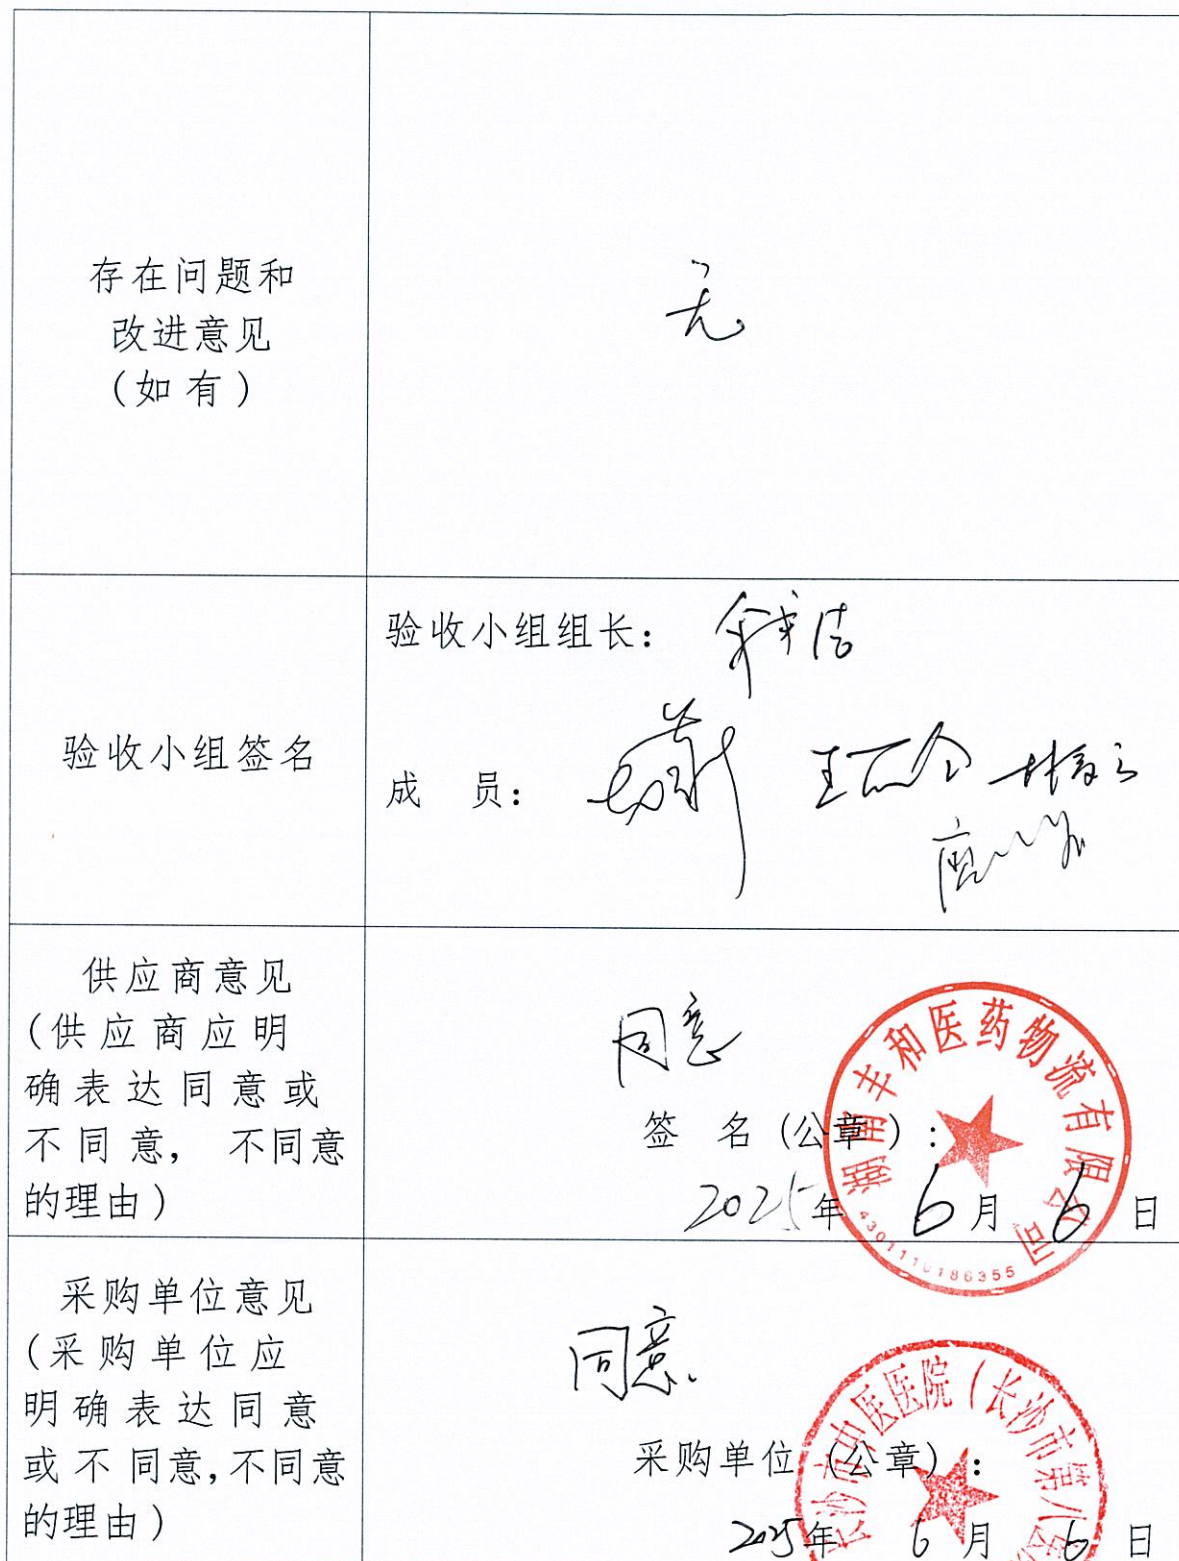 存在问题和
改进意见
（如有）
无
验收小组签名
验收小组组长：
成 员：
供应商意见
（供应商应明
确表达同意或
不同意， 不同意
的理由）
同意
签 名（公章）：
2025年 6月 6日
湖南丰和医药物流有限公司
4301110186355
采购单位意见
（采购单位应
明确表达同意
或不同意，不同意
的理由）
同意.
采购单位（公章）：
2025年 6月 6日
长沙市中医医院（长沙市第八医